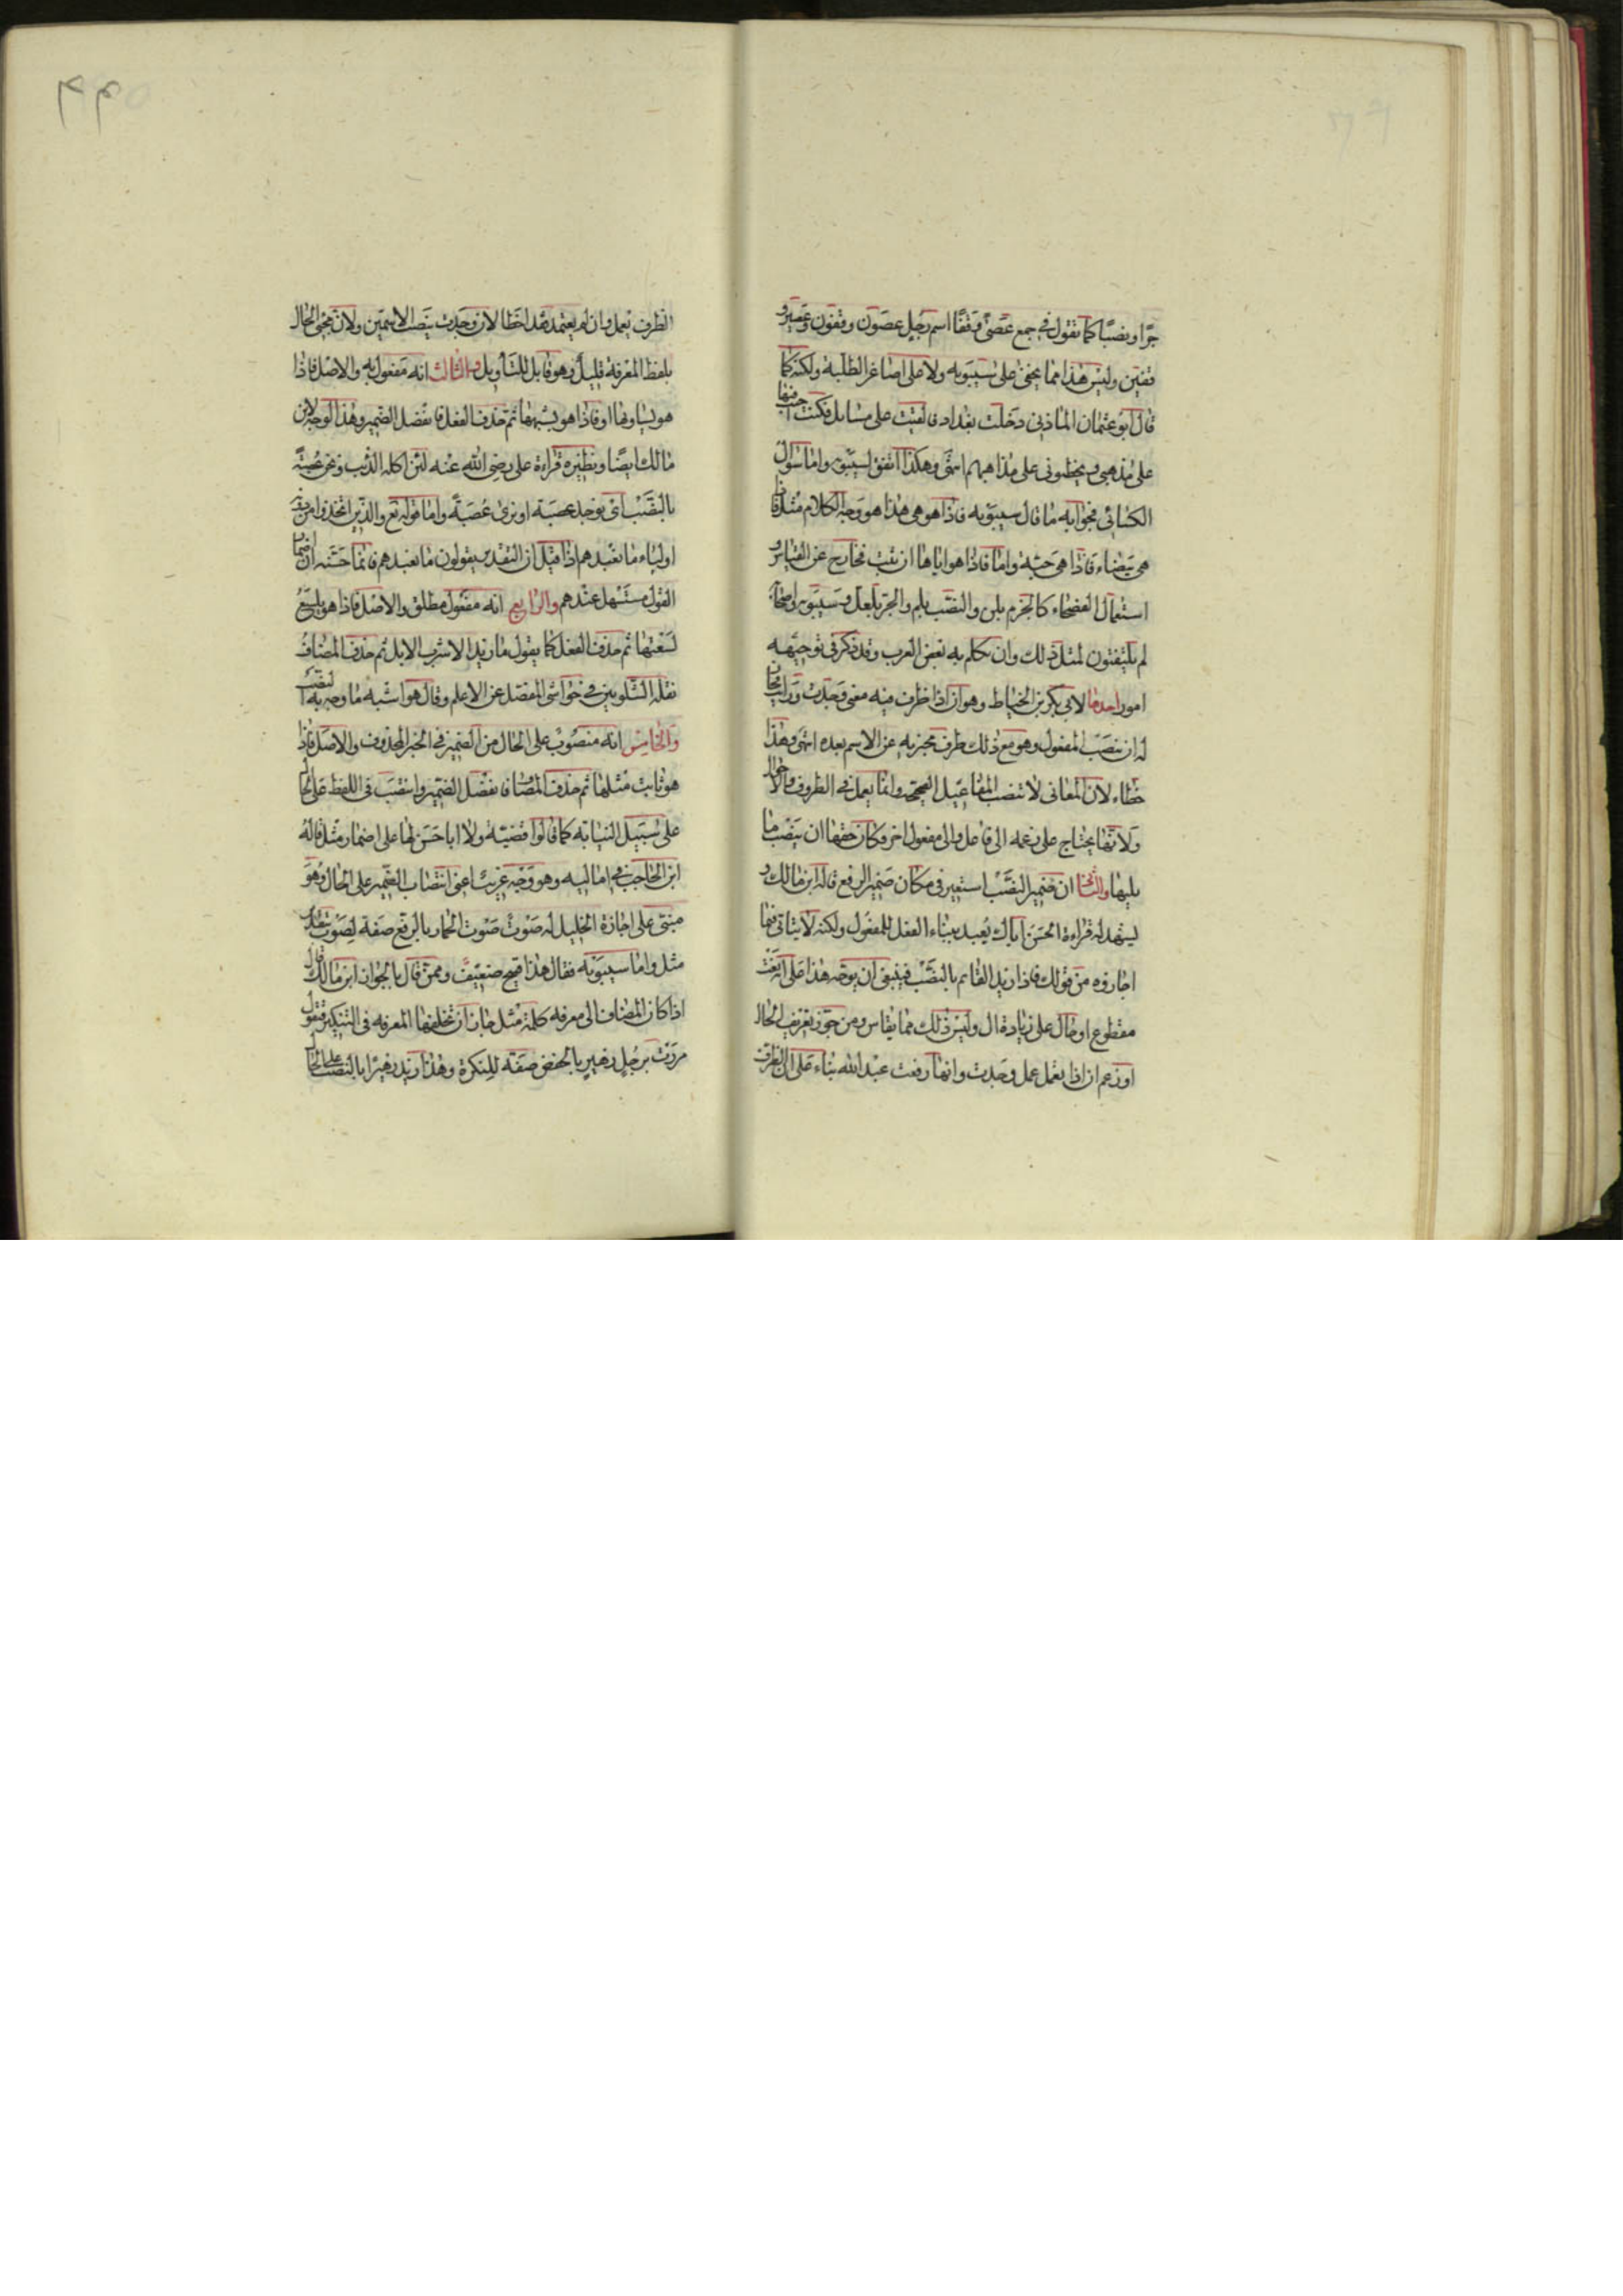 جرّا ونصبًا كما تقول في جمع عصًى وقفًا اسم رجل عصون وقفون وعصين و
قفين وليس هذا مما يخفى على سيبويه ولا على اصاغر الطلبة ولكنه كما
قال ابو عثمان المازني دخلت بغداد فالقيت على مسائل فكنت اجيب فيها
على مذهبي ويخطئوني على مذاهبهم انتهى وهكذا اتفق لسيبويه واما سؤال
الكسائي فجوابه ما قال سيبويه فاذا هو هي هذا هو وجه الكلام مثل فاذا
هي بيضاء فاذا هي حية واما فاذا هو اياها ان ثبت فخارج عن القياس و
استعمال الفصحاء كالجزم بلن والنصب بلم والجر بلعل وسيبويه واصحابه
لم يلتفتون لمثل ذلك وان تكلم به بعض العرب وقد ذكر في توجيهه
امور احدها لابي بكر بن الخياط وهو ان اذا ظرف فيه معنى وجدت ورايت فجاز
له ان ينصب المفعول وهو مع ذلك ظرف مخبر به عن الاسم بعده انتهى وهذا
خطاء لان المعاني لا تنصب المفاعيل الصحيحة وانما يعمل في الظروف والاحوال
ولانها يحتاج على زعمه الى فاعل والى مفعول اخر وكان حقها ان ينصب ما
يليها والثاني ان ضمير النصب استعير في مكان ضمير الرفع قاله ابن مالك و
يشهد له قراءة الحسن اياك يُعبد ببناء الفعل للمفعول ولكنه لا يتاتى فيما
اجازوه من قولك فاذا زيد القائم بالنصب فينبغي ان يوجه هذا على انه نعت
مقطوع او حال على زيادة ال وليس ذلك مما يقاس ومن جوز تعريف الحال
او زعم ان اذا يعمل عمل وجدت وانها رفعت عبد الله بناء على ان الظرف
الظرف يعمل وان لم يعتمد فقد اخطا لان وجدت ينصب الاسمين ولان مجئ الحال
بلفظ المعرفة قليل وهو قابل للتأويل والثالث انه مفعول به والاصل فاذا
هو يساويها او فاذا هو يشبهها ثم حذف الفعل فانفصل الضمير وهذا الوجه لابن
مالك ايضًا ونظيره قراءة علي رضي الله عنه لئن اكله الذئب ونحن عصبةً
بالنصب اي نوجد عصبة او نرى عُصبةً واما قوله تع والذين اتخذوا من دونه
اولياء ما نعبدهم اذا قيل ان التقدير يقولون ما نعبدهم فانما حسنه ان اضمار
القول مستسهل عندهم والرابع انه مفعول مطلق والاصل فاذا هو يلسع
لسعتها ثم حذف الفعل كما يقول ما زيد الا شرب الابل ثم حذف المضاف
نقله الشلوبين في حواشي المفصل عن الاعلم وقال هو اشبه ما وجه به النصب
والخامس انه منصوب على الحال من الضمير في الخبر المحذوف والاصل فاذا
هو ثابت مثلها ثم حذف المضاف فانفصل الضمير وانتصب في اللفظ على الحال
على سبيل النيابة كما قالوا قضية ولا ابا حسن لها على اضمار مثل قاله
ابن الحاجب في اماليه وهو وجه غريب اعني انتصاب الضمير على الحال وهو
مبني على اجازة الخليل له صوتٌ صوت الحمار بالرفع صفة لصوت بتقدير
مثل واما سيبويه فقال هذا قبيح ضعيف وممن قال بالجواز ابن مالك قال
اذا كان المضاف الى معرفة كلمة مثل جاز ان تخلفها المعرفة في التنكير فتقول
مررت برجلٍ زهيرٍ بالخفض صفة للنكرة وهذا زيد زهيرًا بالنصب على الحال